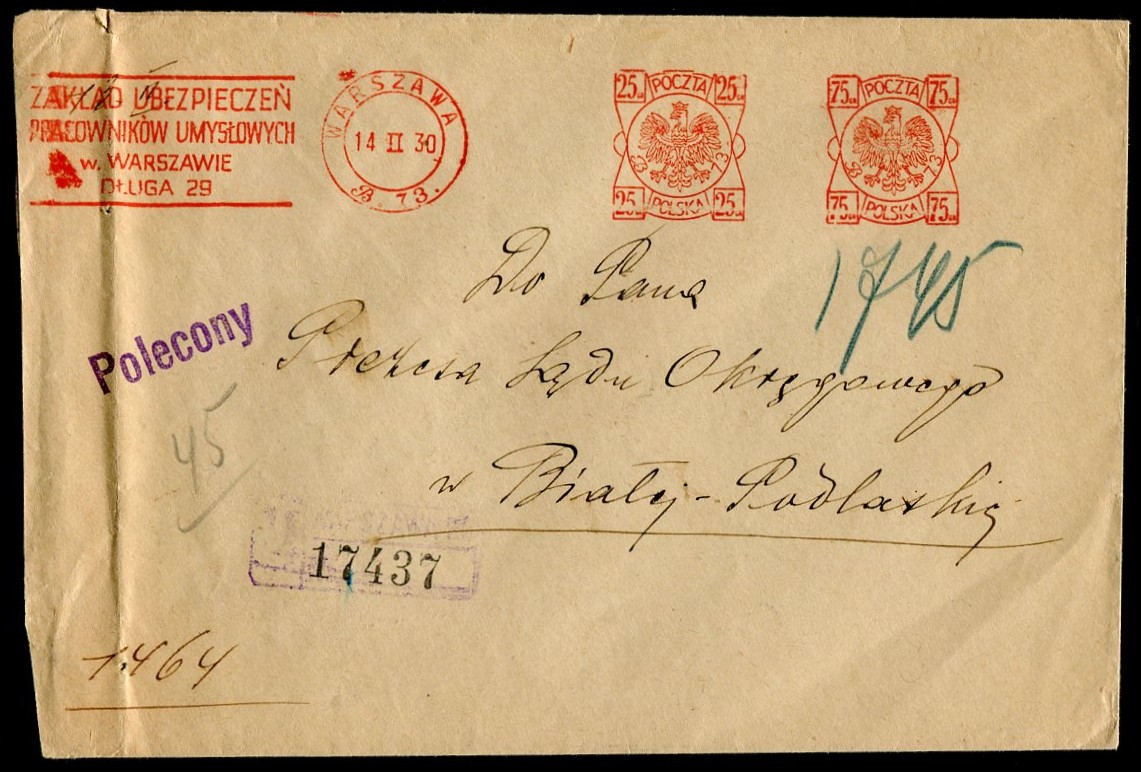 ZAKŁAD UBEZPIECZEŃ
PRACOWNIKÓW UMYSŁOWYCH
w. WARSZAWIE
DŁUGA 29
WARSZAWA
14 II 30
B. 73.
25 GR POCZTA 25 GR
B 73
25 GR POLSKA 25 GR
75 GR POCZTA 75 GR
B 73
75 GR POLSKA 75 GR
Do Pana
1745
Prezesa Sądu Okręgowego
Polecony
45
w Białej-Podlaskiej
17437
1464